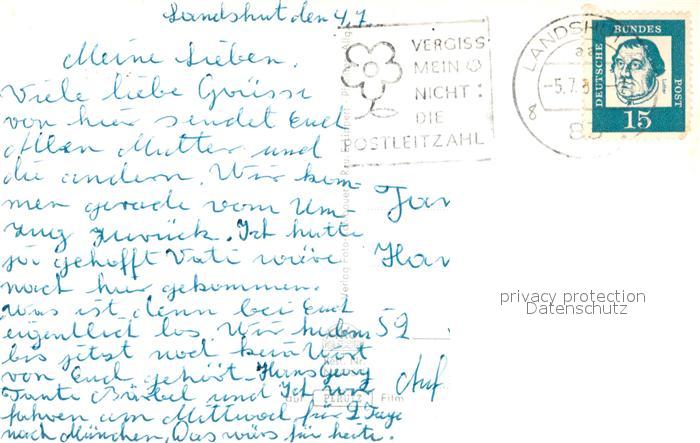 Landshut den 4.7.
Meine Lieben.
Viele liebe Grüsse
von hier sendet Euch
Allen Mutter und
die andern. Wir kom-
men gerade vom Um-
zug zurück. Ich hatte
ja gehofft Vati wäre
nach hier gekommen.
Was ist denn bei Euch
eigentlich los. Wir haben
bis jetzt noch kein Wort
von Euch gehört. Hans Georg
Tante Bärbel und Ich
fahren am Mittwoch für 2 Tage
nach München. Das wärs für heute.
VERGISS
MEIN
NICHT:
DIE
POSTLEITZAHL
LANDSHUT
-5.7.
8
DEUTSCHE BUNDES POST
15
Fam
Han
52
Auf
Film
privacy protection
Datenschutz